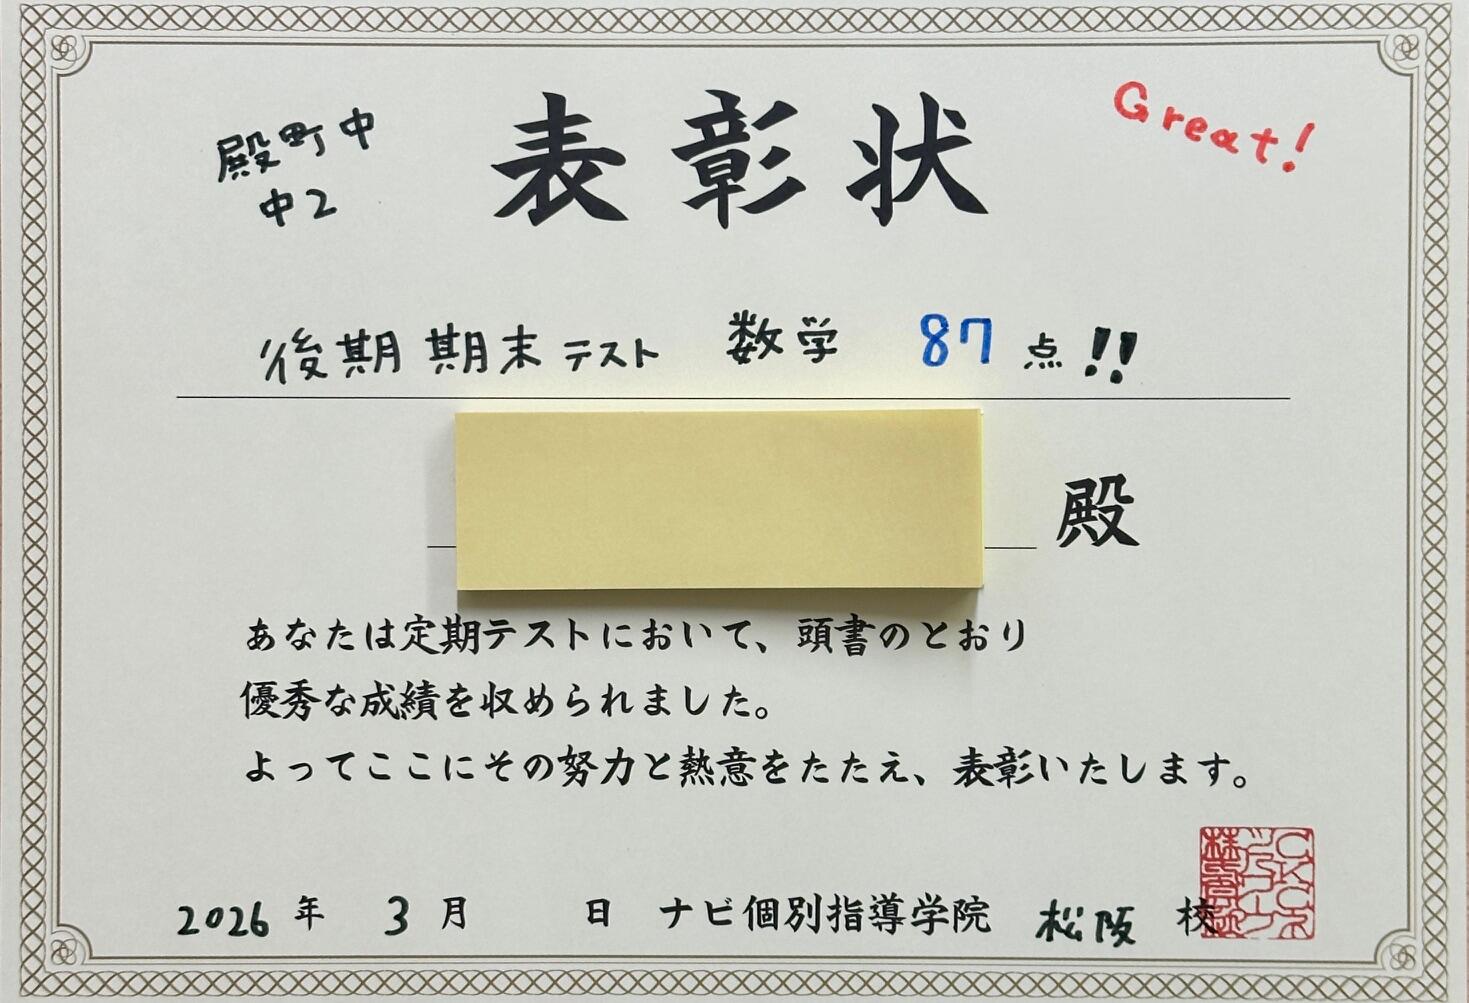 殿町中
中2
表彰状
Great!
後期 期末 テスト 数学 87 点!!
殿
あなたは定期テストにおいて、頭書のとおり
優秀な成績を収められました。
よってここにその努力と熱意をたたえ、表彰いたします。
2026 年 3 月 日 ナビ個別指導学院 松阪 校